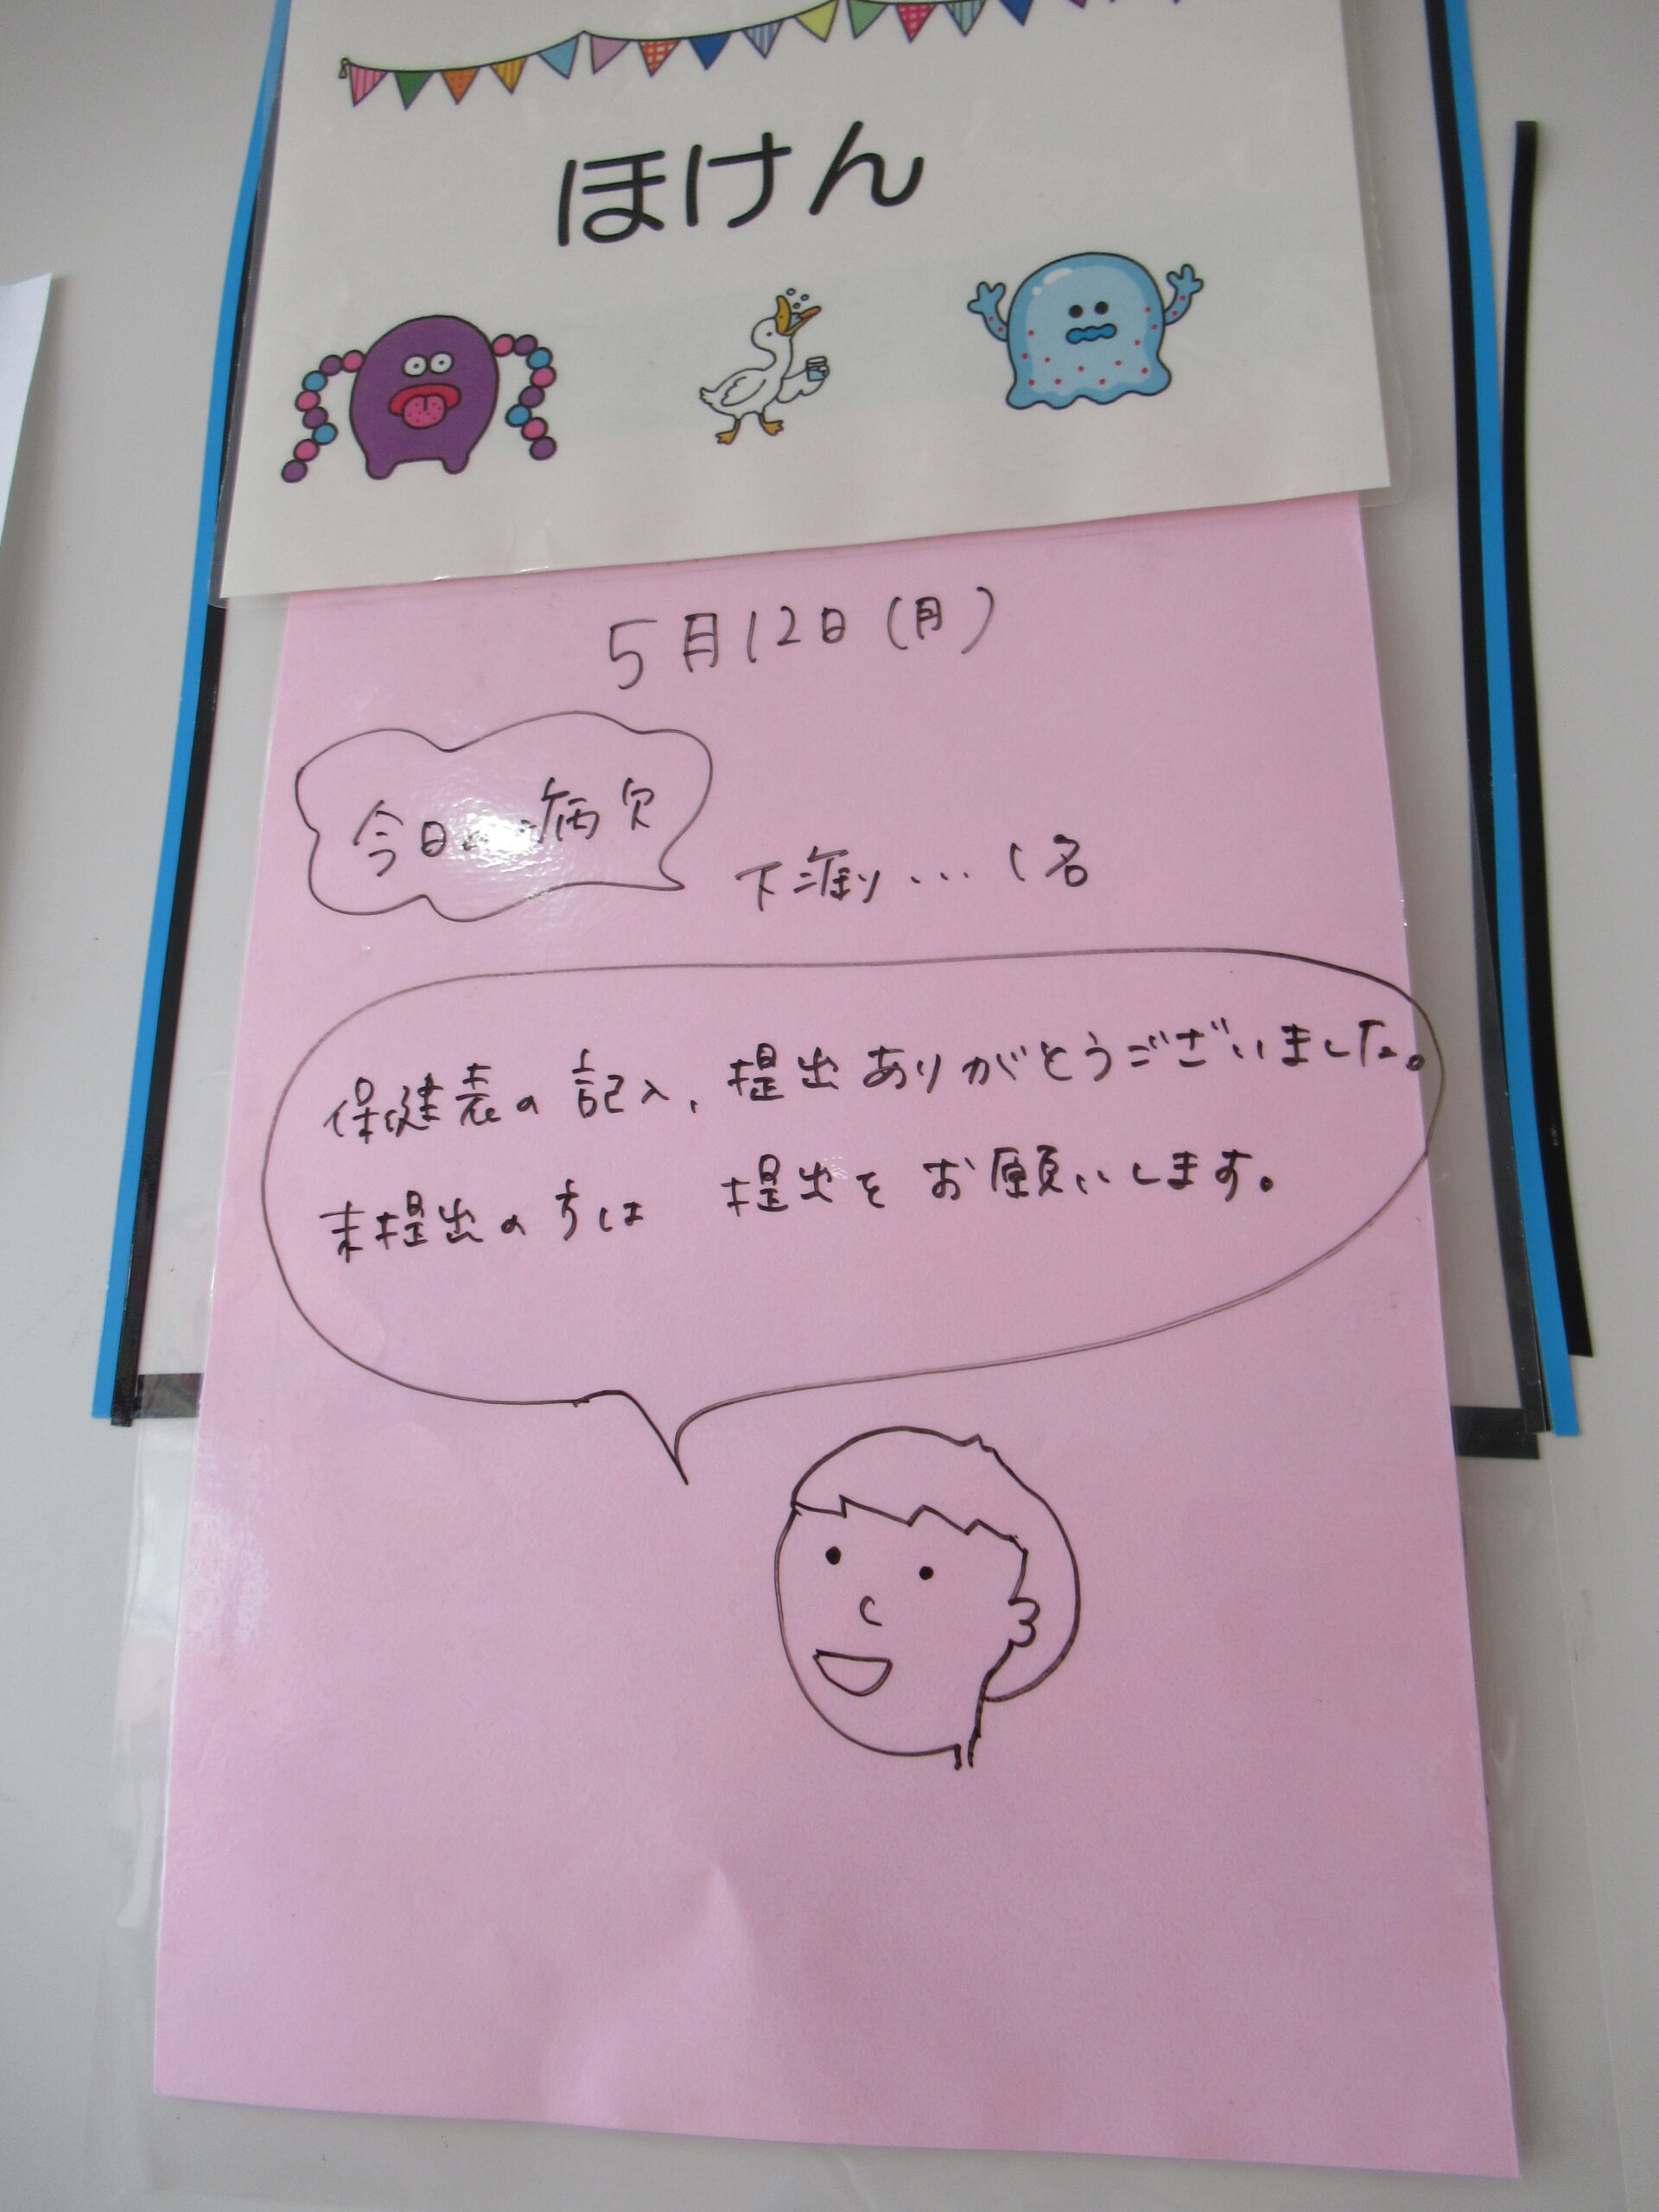 ほけん
5月12日(月)
今日の病欠
下痢...1名
保健表の記入、提出ありがとうございました。
未提出の方は 提出を お願いします。